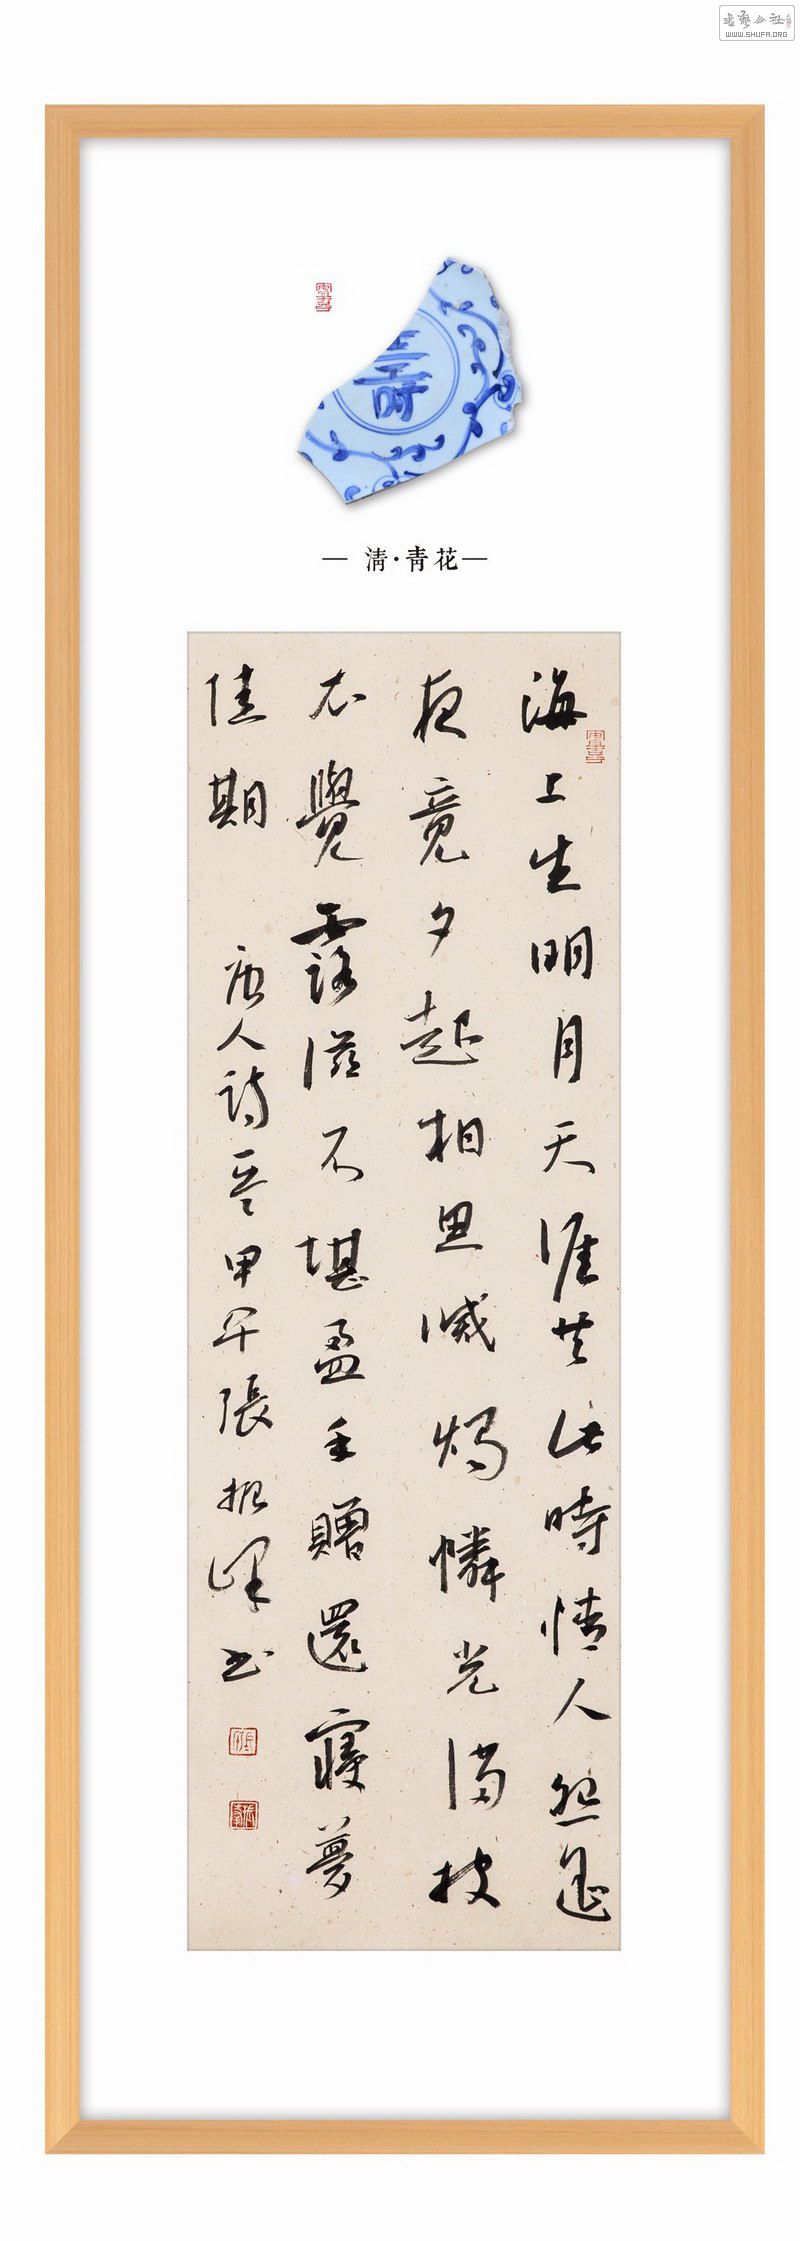 书艺公社
WWW.SHUFA.ORG
壽
— 清·青花—
海上生明月天涯共此時情人怨遙
夜竟夕起相思滅燭憐光滿披
衣覺露滋不堪盈手贈還寢夢
佳期 唐人詩一首甲午張振峰书